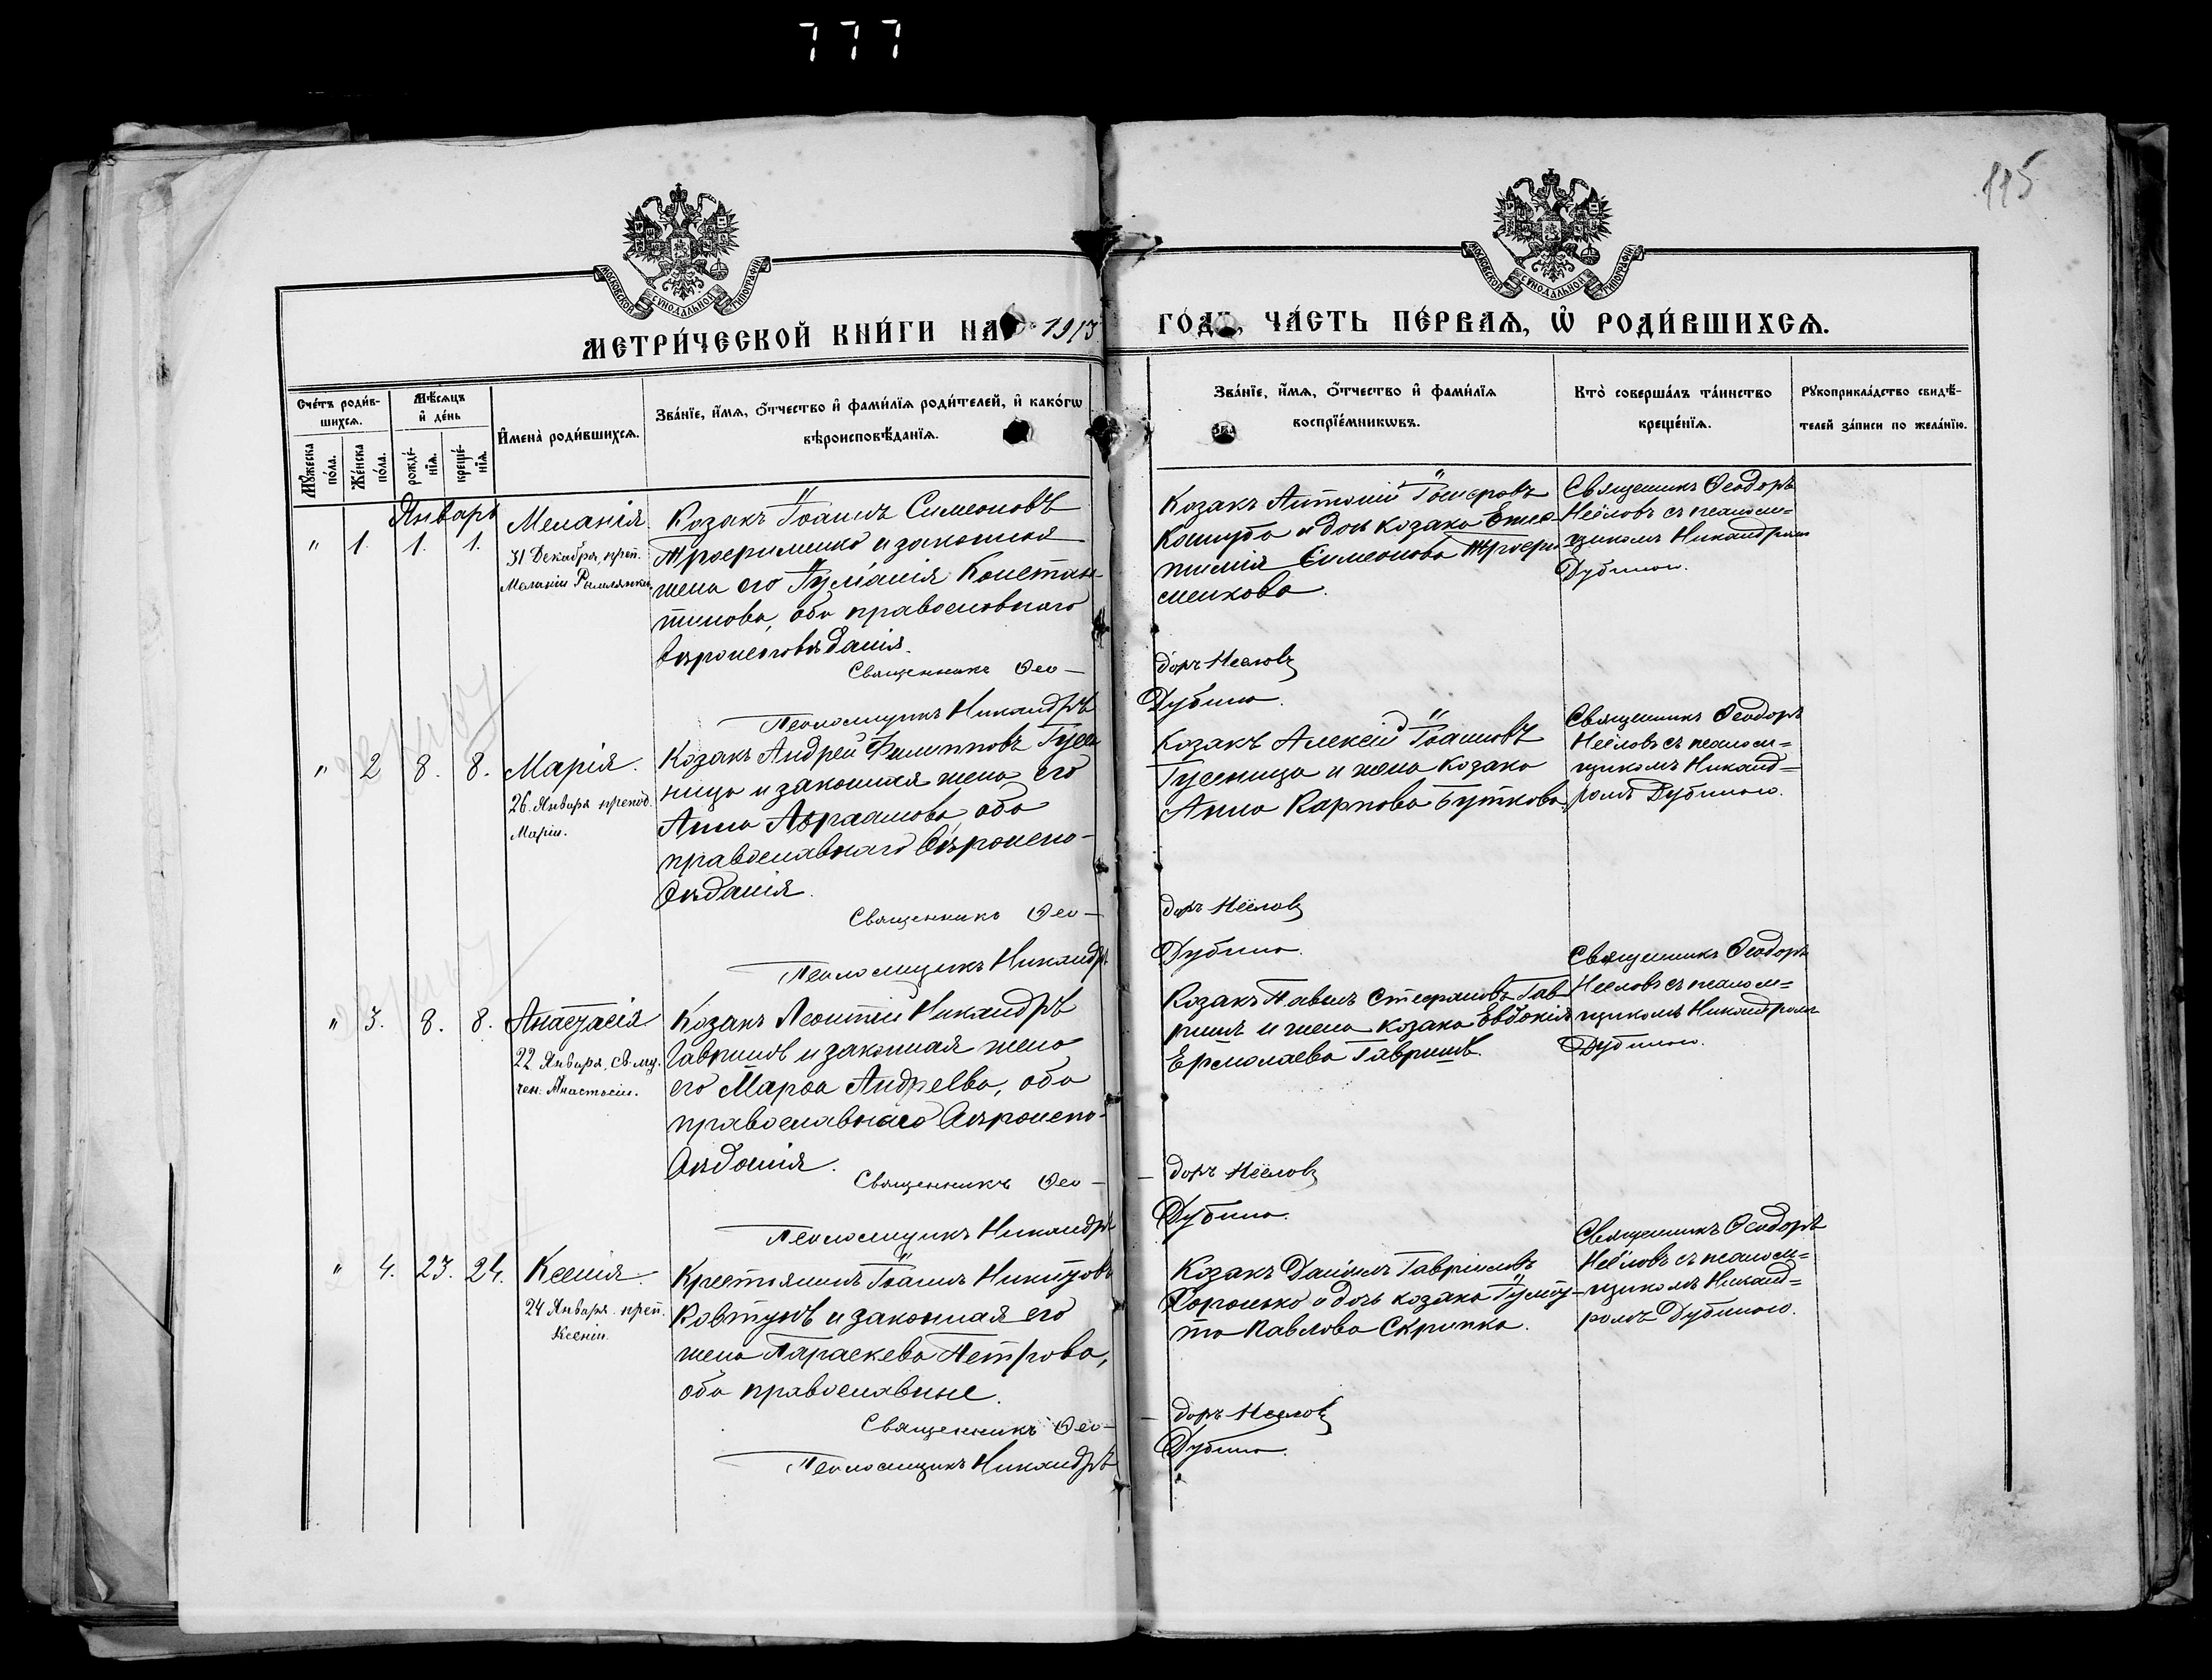 777
115
МОСКОВСКОЙ СѴНОДАЛЬНОЙ ТИПОГРАФІИ
МОСКОВСКОЙ СѴНОДАЛЬНОЙ ТИПОГРАФІИ
МЕТРИ́ЧЕСКОЙ КНИ́ГИ НА 1913 ГО́ДЪ, ЧА́СТЬ ПЕ́РВАѦ, Ѡ҆ РОДИ́ВШИХСѦ.
Сче́тъ роди́в-
шихсѧ.
Мꙋ́жеска по́ла.
Же́нска по́ла.
Мѣ́сѧцъ
и҆ де́нь
рожде́-
нїѧ.
креще́-
нїѧ.
И҆мена̀ роди́вшихсѧ.
Зва́нїе, и҆́мѧ, ѻ҆́тчество и҆ фами́лїѧ роди́телей, и҆ како́гѡ
вѣроисповѣ́данїѧ.
Зва́нїе, и҆́мѧ, ѻ҆́тчество и҆ фами́лїѧ
воспрїе́мникѡвъ.
Кто̀ соверша́лъ та́инство
креще́нїѧ.
Рꙋкоприкла́дство свидѣ́-
телей за́писи по жела́нїю.
Январь
" 1. 1. 1.
Меланія.
31 Декабря, преп.
Меланіи Римлянки.
Козакъ Іоаннъ Симеоновъ
Трофименко и законная
жена его Іуліанія Констан-
тинова, оба православнаго
вѣроисповѣданія.
Священникъ Ѳео-
доръ Нееловъ
Псаломщикъ Никандръ
Дубина.
Козакъ Антоній
Кошуба и дочь козака
Симеонова Трофи-
менкова.
Священникъ Ѳеодоръ
Нееловъ съ псалом=
щикомъ Никандромъ
Дубиною.
" 2 8. 8.
Марія.
26. Января препод.
Маріи.
Козакъ Андрей Филипповъ Гусе
ница и законная жена его
Анна Авраамова, оба
православнаго вѣроиспо-
вѣданія.
Священникъ Ѳео-
доръ Нееловъ
Псаломщикъ Никандръ
Дубина.
Козакъ Алексій Іоанновъ
Гусеница и жена козака
Анна Карпова Буткова.
Священникъ Ѳеодоръ
Нееловъ съ псалом=
щикомъНиканд=
ромъ Дубиною.
" 3. 8. 8.
Анастасія
22. Января, св. му.
чен. Анастасіи.
Козакъ Леонтій Никандръ
Гавришъ и законная жена
его Марѳа Андреева, оба
православнаго вѣроиспо-
вѣданія.
Священникъ Ѳео-
доръ Нееловъ
Псаломщикъ Никандръ
Дубина.
Козакъ Павелъ Стефановъ Гав-
ришъ и жена козака Евдокія
Ермолаева Гавришъ.
Священникъ Ѳеодоръ
Нееловъ съ псалом=
щикомъ Никандромъ
Дубиною.
" 4. 23. 24.
Ксенія.
24 Января преп.
Ксеніи.
Крестьянинъ Іоаннъ Никитовъ
Ковтунъ и законная его
жена Параскева Петрова,
оба православные.
Священникъ Ѳео-
доръ Нееловъ
Псаломщикъ Никандръ
Дубина.
Козакъ Даніилъ Гавріиловъ
Хоронько и дочь козака Іулит-
та Павлова Скрипка.
Священникъ Ѳеодоръ
Нееловъ съ псалом=
щикомъ Никанд=
ромъ Дубиною.